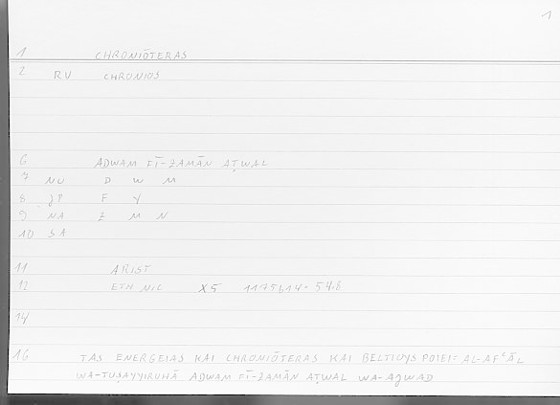 1
1 CHRONIŌTERAS
2 RV CHRONIOS
6 ADWAM FĪ-ZAMĀN AṬWAL
7 NV D W M
8 F Y
9 NA Z M N
10 SA
11 ARIST
12 ETH NIC X5 1175A14 = 54.8
14
16 TAS ENERGEIAS KAI CHRONIŌTERAS KAI BELTIOYS POIEI = AL-AFʿĀL
WA-TUṢAYYIRUHĀ ADWAM FĪ-ZAMĀN AṬWAL WA-AǦWAD